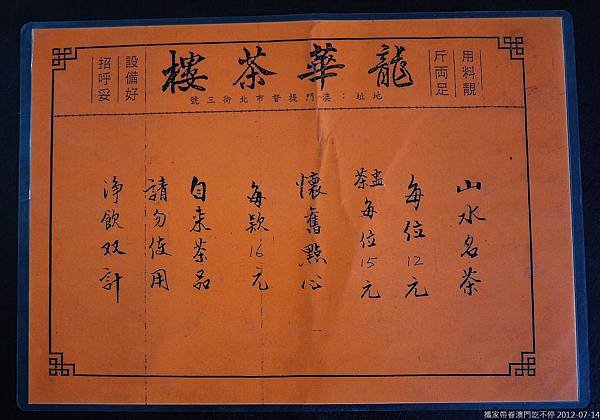 龍華茶樓
用料靚
斤両足
設備好
招呼妥
地址：澳門提督市北街三號
山水名茶
每位12元
茶盅每位15元
懷舊點心
每款16元
自来茶品
請勿使用
淨飲双計
攜家帶眷澳門吃不停 2012-07-14